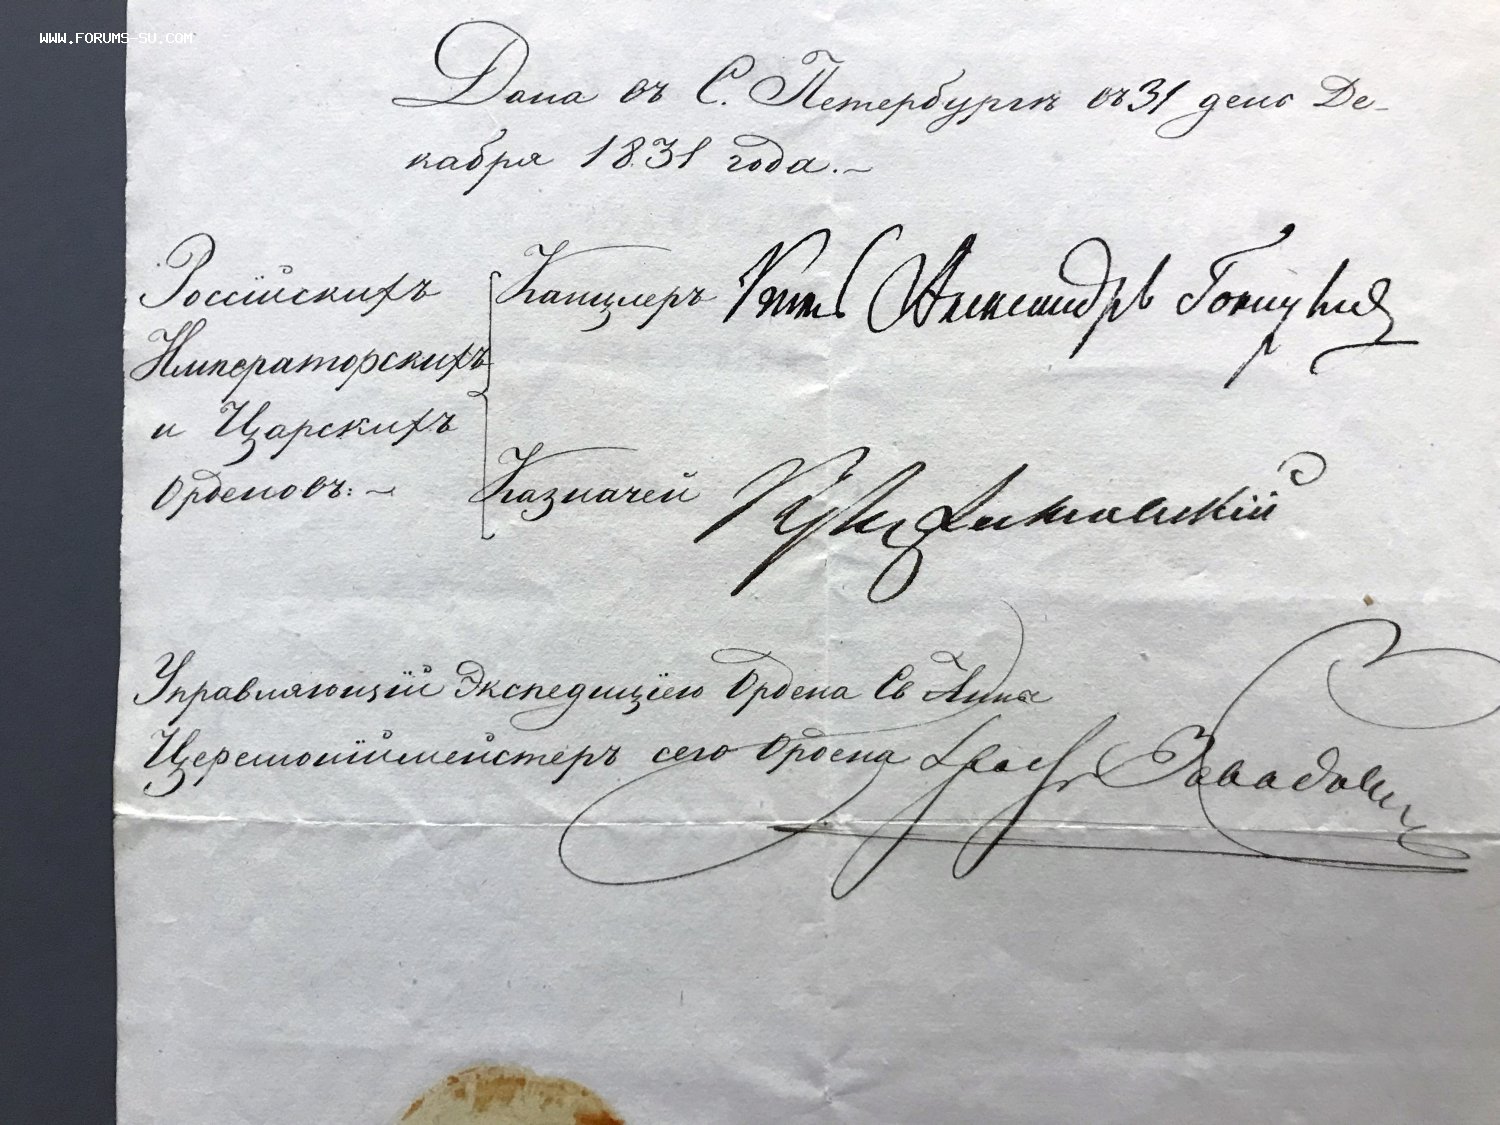 WWW.FORUMS-SU.COM
Дана въ С. Петербургѣ въ 31 день Де-
кабря 1831 года.~
Россійскихъ
Императорскихъ
и Царскихъ
Орденовъ: ~
Канцлеръ Князь Александръ Голицынъ
Казначей
Управляющій Экспедиціею Ордена Св Анны
Церемоніймейстеръ сего Ордена Графъ Завадов